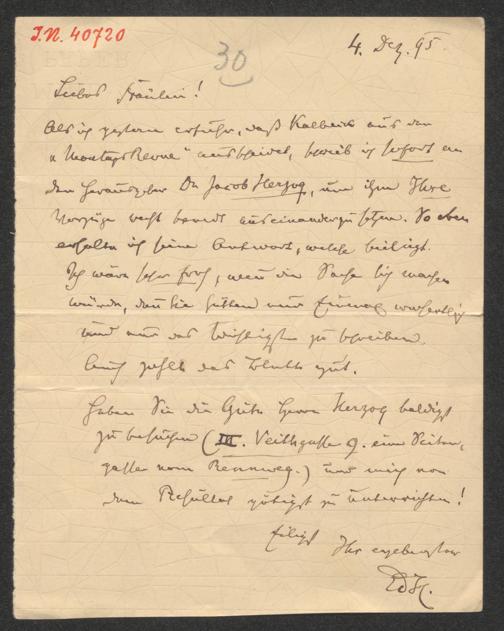 I.N. 40720
30
4. Dez. 95.
Liebes Fräulein!
Als ich gestern erfuhr, daß Kalbeck aus der
„Montags Revue" ausscheidet, schrieb ich sofort an
den Herausgeber Dr Jacob Herzog, um ihm Ihre
Vorzüge recht beredt auseinanderzusetzen. So eben
erhalte ich seine Antwort, welche beiliegt.
Ich wäre sehr froh, wenn die Sache sich machen
würde, den Sie hätten nur Einmal wöchentlich
und nur das Wichtigste zu schreiben.
Auch zahlt das Blatt gut.
Haben Sie die Güte Herrn Herzog baldigst
zu besuchen (III. Veithgasse 9. eine Seiten-
gasse vom Rennweg.) und mich von
dem Resultat gütigst zu unterrichten!
Eiligst Ihr ergebenster
EdH.